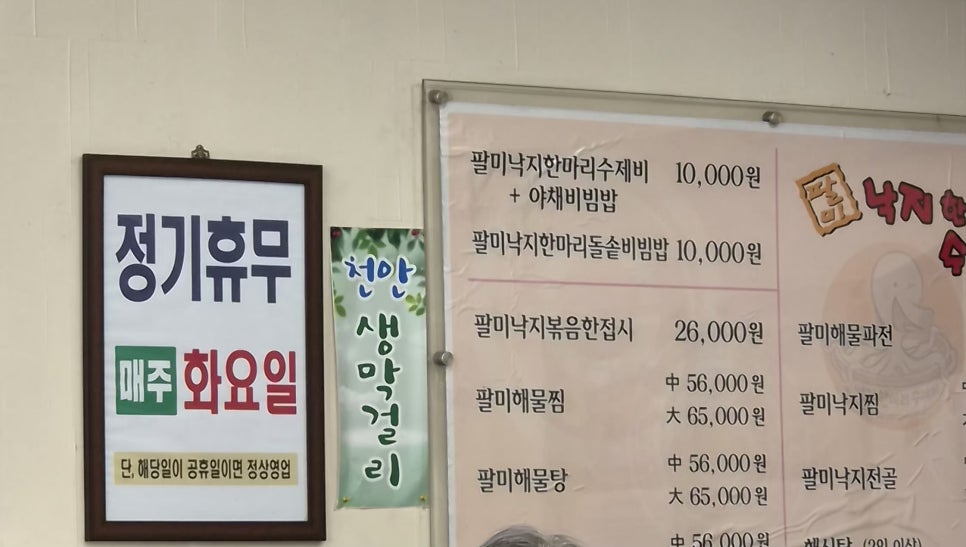 정기휴무
매주 화요일
단, 해당일이 공휴일이면 정상영업
천안
생막걸리
팔미낙지한마리수제비 10,000원
+ 야채비빔밥
팔미낙지한마리돌솥비빔밥 10,000원
팔미낙지볶음한접시 26,000원
팔미해물찜 中 56,000원
大 65,000원
팔미해물탕 中 56,000원
大 65,000원
中 56,000원
팔미
낙지 한
수
팔미해물파전
팔미낙지찜
팔미낙지전골
해신탕 (2인 이상)